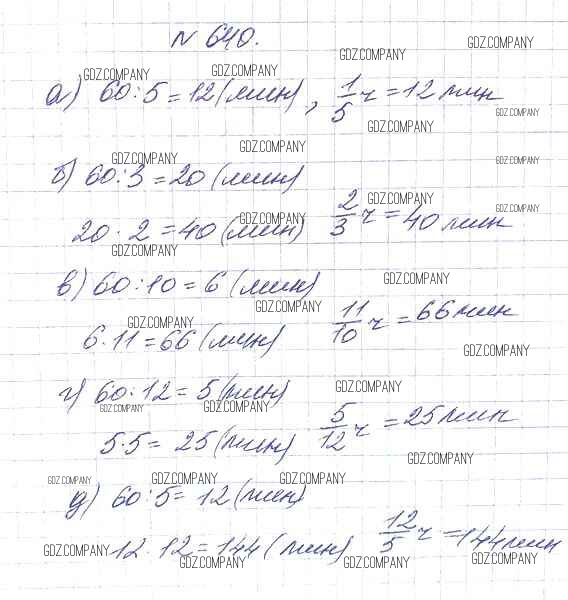 № 640.
GDZ.COMPANY GDZ.COMPANY GDZ.COMPANY GDZ.COMPANY
а) 60:5=12(мин), 1/5 ч =12 мин
GDZ.COMPANY GDZ.COMPANY
GDZ.COMPANY GDZ.COMPANY GDZ.COMPANY
б) 60:3=20 (мин)
GDZ.COMPANY GDZ.COMPANY GDZ.COMPANY
20·2=40 (мин) 2/3 ч = 40 мин
GDZ.COMPANY GDZ.COMPANY
в) 60:10=6 (мин)
GDZ.COMPANY GDZ.COMPANY
6·11=66 (мин) 11/10 ч = 66 мин
GDZ.COMPANY
г) 60:12=5(мин)
GDZ.COMPANY GDZ.COMPANY GDZ.COMPANY
5·5= 25(мин) 5/12 ч =25 мин
GDZ.COMPANY
GDZ.COMPANY GDZ.COMPANY GDZ.COMPANY
д) 60:5= 12(мин)
12·12=144( мин) 12/5 ч =144 мин
GDZ.COMPANY GDZ.COMPANY GDZ.COMPANY GDZ.COMPANY